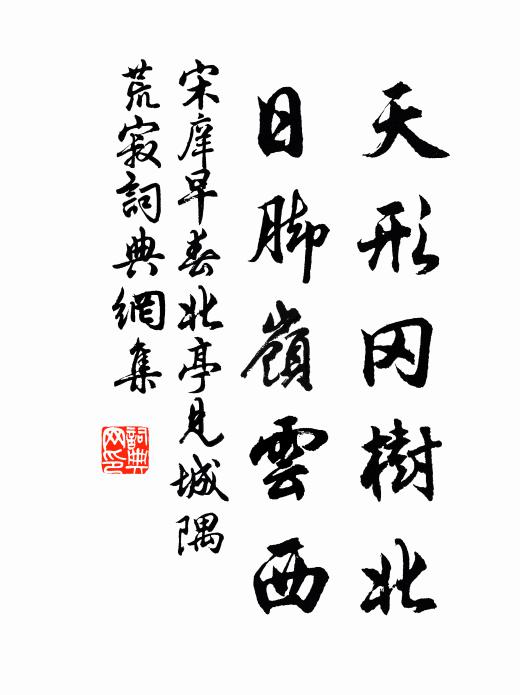 天形冈樹北
日脚嶺雲西
宋庠早春北亭見城隅
荒寂詞典網集
詞典网印